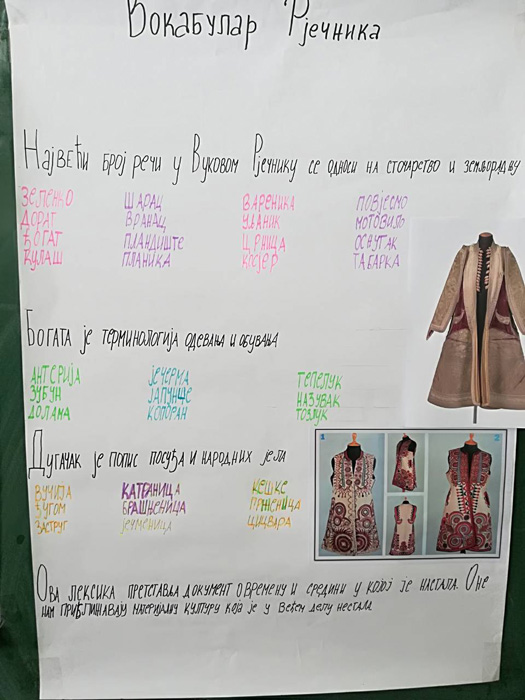 Вокабулар Рјечника
Највећи број речи у Вуковом Рјечнику се односи на сточарство и земљорадњу
ЗЕЛЕНКО ШАРАЦ ВАРЕНИКА ПОВЈЕСМО
ДОРАТ ВРАНАЦ УЉАНИК МОТОВИЛО
ЂОГАТ ПЛАНДИШТЕ ЦРНИЦА ОСНУТАК
КУЛАШ ПЛАНИКА КОСЈЕР ТАБАРКА
Богата је терминологија одевања и обувања
АНТЕРИЈА ЈЕЧЕРМА ТЕПЕЛУК
ЗУБУН ЈАПУНЏЕ НАЗУВАК
ДОЛАМА КОПОРАН ТОЗЛУК
Дугачак је попис посуђа и народних јела
ВУЧИЈА КАТРАНИЦА КЕШКЕ
ЂУГОМ БРАШНЕНИЦА ПРЖЕНИЦА
ЗАСТРУГ ЈЕЧМЕНИЦА ЦИЦВАРА
1 2
Ова лексика претставља документ о времену и средини у којој је настала. Оне
нам приближавају материјалну културу која је у већем делу нестала